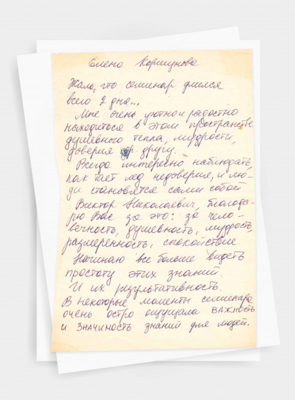 Елена Коршунова
Жаль, что семинар длился
всего 2 дня...
Мне очень уютно и радостно
находиться в этом пространстве
душевного тепла, мудрости,
доверия др другу.
Всегда интересно наблюдать,
как тает лёд недоверия, и лю-
ди становятся сами собой
Виктор Николаевич, благода-
рю Вас за это: за чело-
вечность, душевность, мудрость,
размеренность, спокойствие
Начинаю все больше видеть
простоту этих знаний.
И их результативность.
В некоторые моменты семинара
очень остро ощущала важность
и значимость знаний для людей.